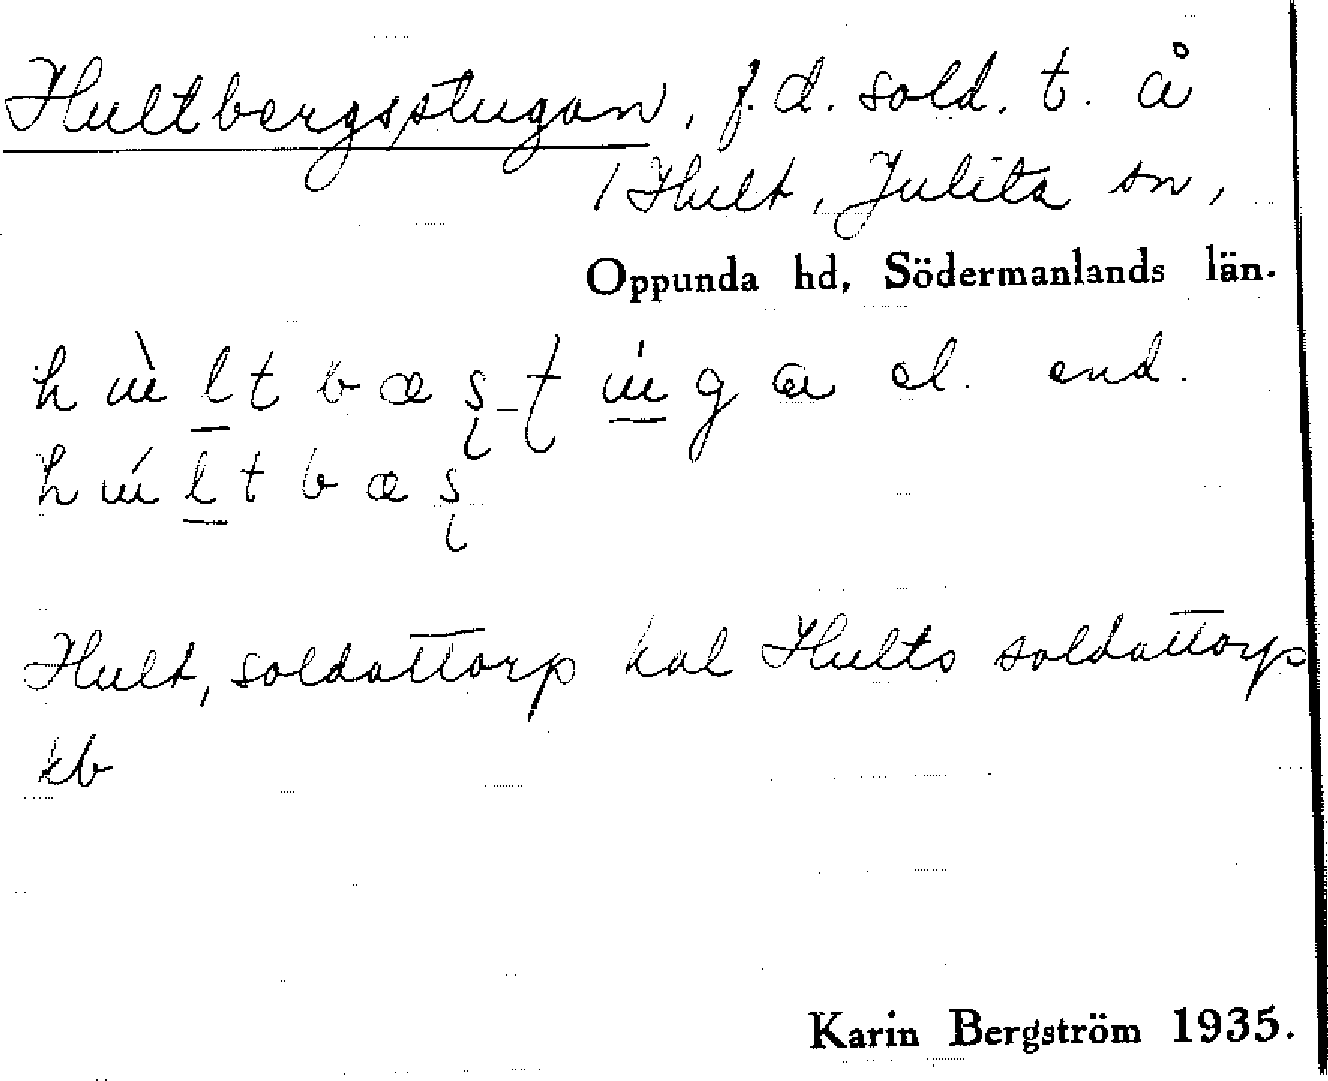 Hultbergsstugan, f.d. sold. t. å
/ Hult, Julita sn,
Oppunda hd, Södermanlands län.
el. end.
Hult, soldattorp kal Hults soldattorp
kb
Karin Bergström 1935.